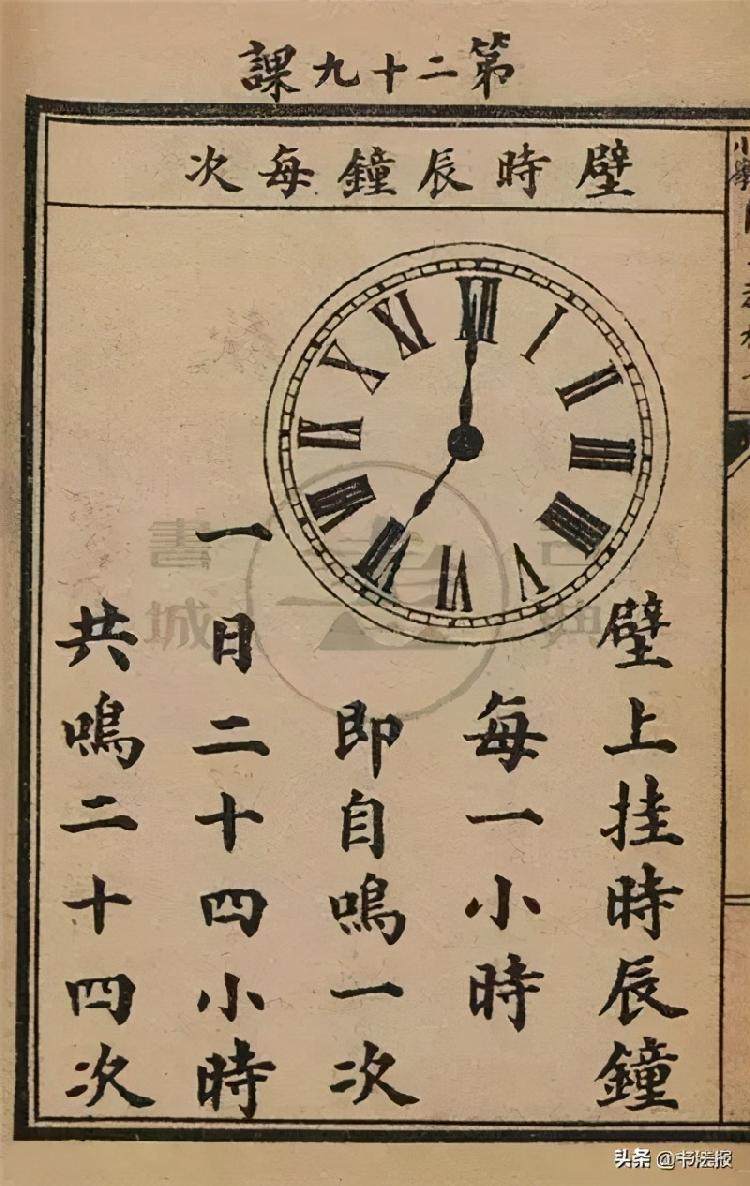 第二十九課
壁時辰鐘每次
XII
I
II
III
IIII
V
VI
VII
VIII
IX
X
XI
壁上挂時辰鐘
每一小時
即自鳴一次
一日二十四小時
共鳴二十四次
古典
書城
头条 @书法报